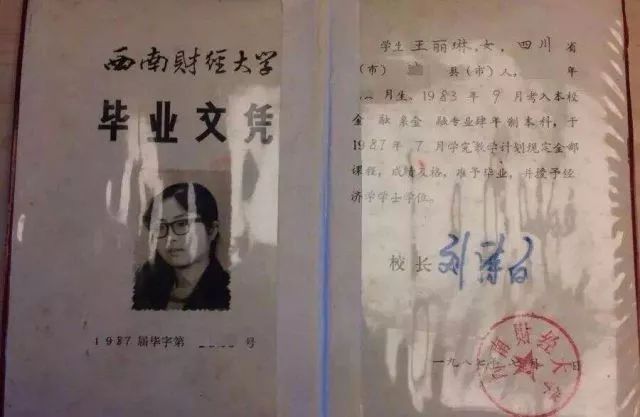 西南财经大学
毕业文凭
1987届毕字第 号
学生王丽琳,女,四川省
(市) 县(市)人, 年
月生。1983年9月考入本校
金融系金融专业肆年制本科,于
1987年7月学完教学计划规定全部
课程,成绩及格,准予毕业,并授予经
济学学士学位。
校长 刘诗白
一九八七年 月 日
西南财经大学